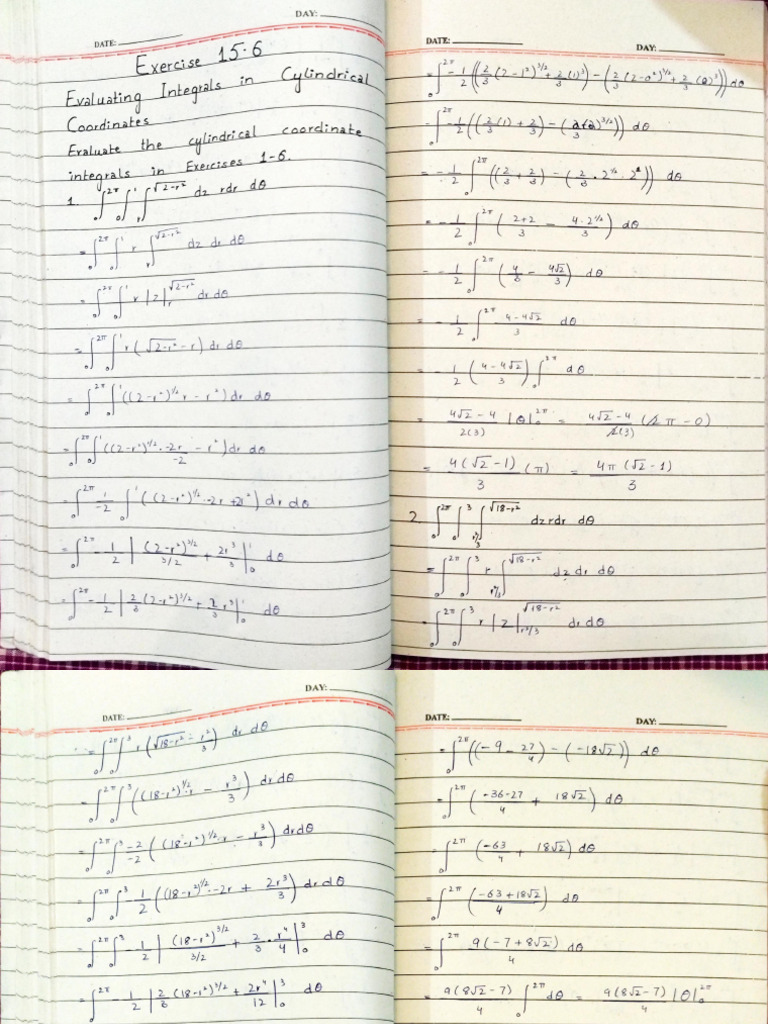 DAY:
DATE:
Exercise 15.6
Evaluating Integrals in Cylindrical
Coordinates
Evaluate the cylindrical coordinate
integrals in Exercises 1-6.
1. ∫₀^2π ∫₀^1 ∫_r^√(2-r²) dz rdr dθ
= ∫₀^2π ∫₀^1 r ∫_r^√(2-r²) dz dr dθ
= ∫₀^2π ∫₀^1 r |z|_r^√(2-r²) dr dθ
= ∫₀^2π ∫₀^1 r (√(2-r²) - r) dr dθ
= ∫₀^2π ∫₀^1 ((2-r²)^1/2 r - r²) dr dθ
= ∫₀^2π ∫₀^1 ((2-r²)^1/2 · -2r/-2 - r²) dr dθ
= ∫₀^2π 1/-2 ∫₀^1 ((2-r²)^1/2 · -2r + 2r²) dr dθ
= ∫₀^2π -1/2 |(2-r²)^3/2 / 3/2 + 2r³/3|₀^1 dθ
= ∫₀^2π -1/2 |2/3 (2-r²)^3/2 + 2/3 r³|₀^1 dθ
DATE:
DAY:
= ∫₀^2π -1/2 ((2/3 (2-1²)^3/2 + 2/3 (1)³) - (2/3 (2-0²)^3/2 + 2/3 (0)³)) dθ
= ∫₀^2π -1/2 ((2/3 (1) + 2/3) - (2/3 (2)^3/2)) dθ
= -1/2 ∫₀^2π ((2/3 + 2/3) - (2/3 · 2^1/2 · 2)) dθ
= -1/2 ∫₀^2π (2+2/3 - 4·2^1/2/3) dθ
= -1/2 ∫₀^2π (4/3 - 4√2/3) dθ
= -1/2 ∫₀^2π 4-4√2/3 dθ
= -1/2 (4-4√2/3) ∫₀^2π dθ
= 4√2-4/2(3) |θ|₀^2π = 4√2-4/2(3) (2π-0)
= 4(√2-1)/3 (π) = 4π(√2-1)/3
2. ∫₀^2π ∫₀^3 ∫_r²/3^√(18-r²) dz rdr dθ
= ∫₀^2π ∫₀^3 r ∫_r²/3^√(18-r²) dz dr dθ
= ∫₀^2π ∫₀^3 r |z|_r²/3^√(18-r²) dr dθ
DAY:
DATE:
= ∫₀^2π ∫₀^3 r (√(18-r²) - r²/3) dr dθ
= ∫₀^2π ∫₀^3 ((18-r²)^1/2 · r - r³/3) dr dθ
= ∫₀^2π ∫₀^3 -2/-2 ((18-r²)^1/2 · r - r³/3) dr dθ
= ∫₀^2π ∫₀^3 -1/2 ((18-r²)^1/2 · -2r + 2r³/3) dr dθ
= ∫₀^2π ∫₀^3 -1/2 |(18-r²)^3/2 / 3/2 + 2/3 · r⁴/4|₀^3 dθ
= ∫₀^2π -1/2 |2/3 (18-r²)^3/2 + 2r⁴/12|₀^3 dθ
DATE:
DAY:
= ∫₀^2π ((-9 - 27/4) - (-18√2)) dθ
= ∫₀^2π (-36-27/4 + 18√2) dθ
= ∫₀^2π (-63/4 + 18√2) dθ
= ∫₀^2π (-63+18√2/4) dθ
= ∫₀^2π 9(-7+8√2)/4 dθ
= 9(8√2-7)/4 ∫₀^2π dθ = 9(8√2-7)/4 |θ|₀^2π